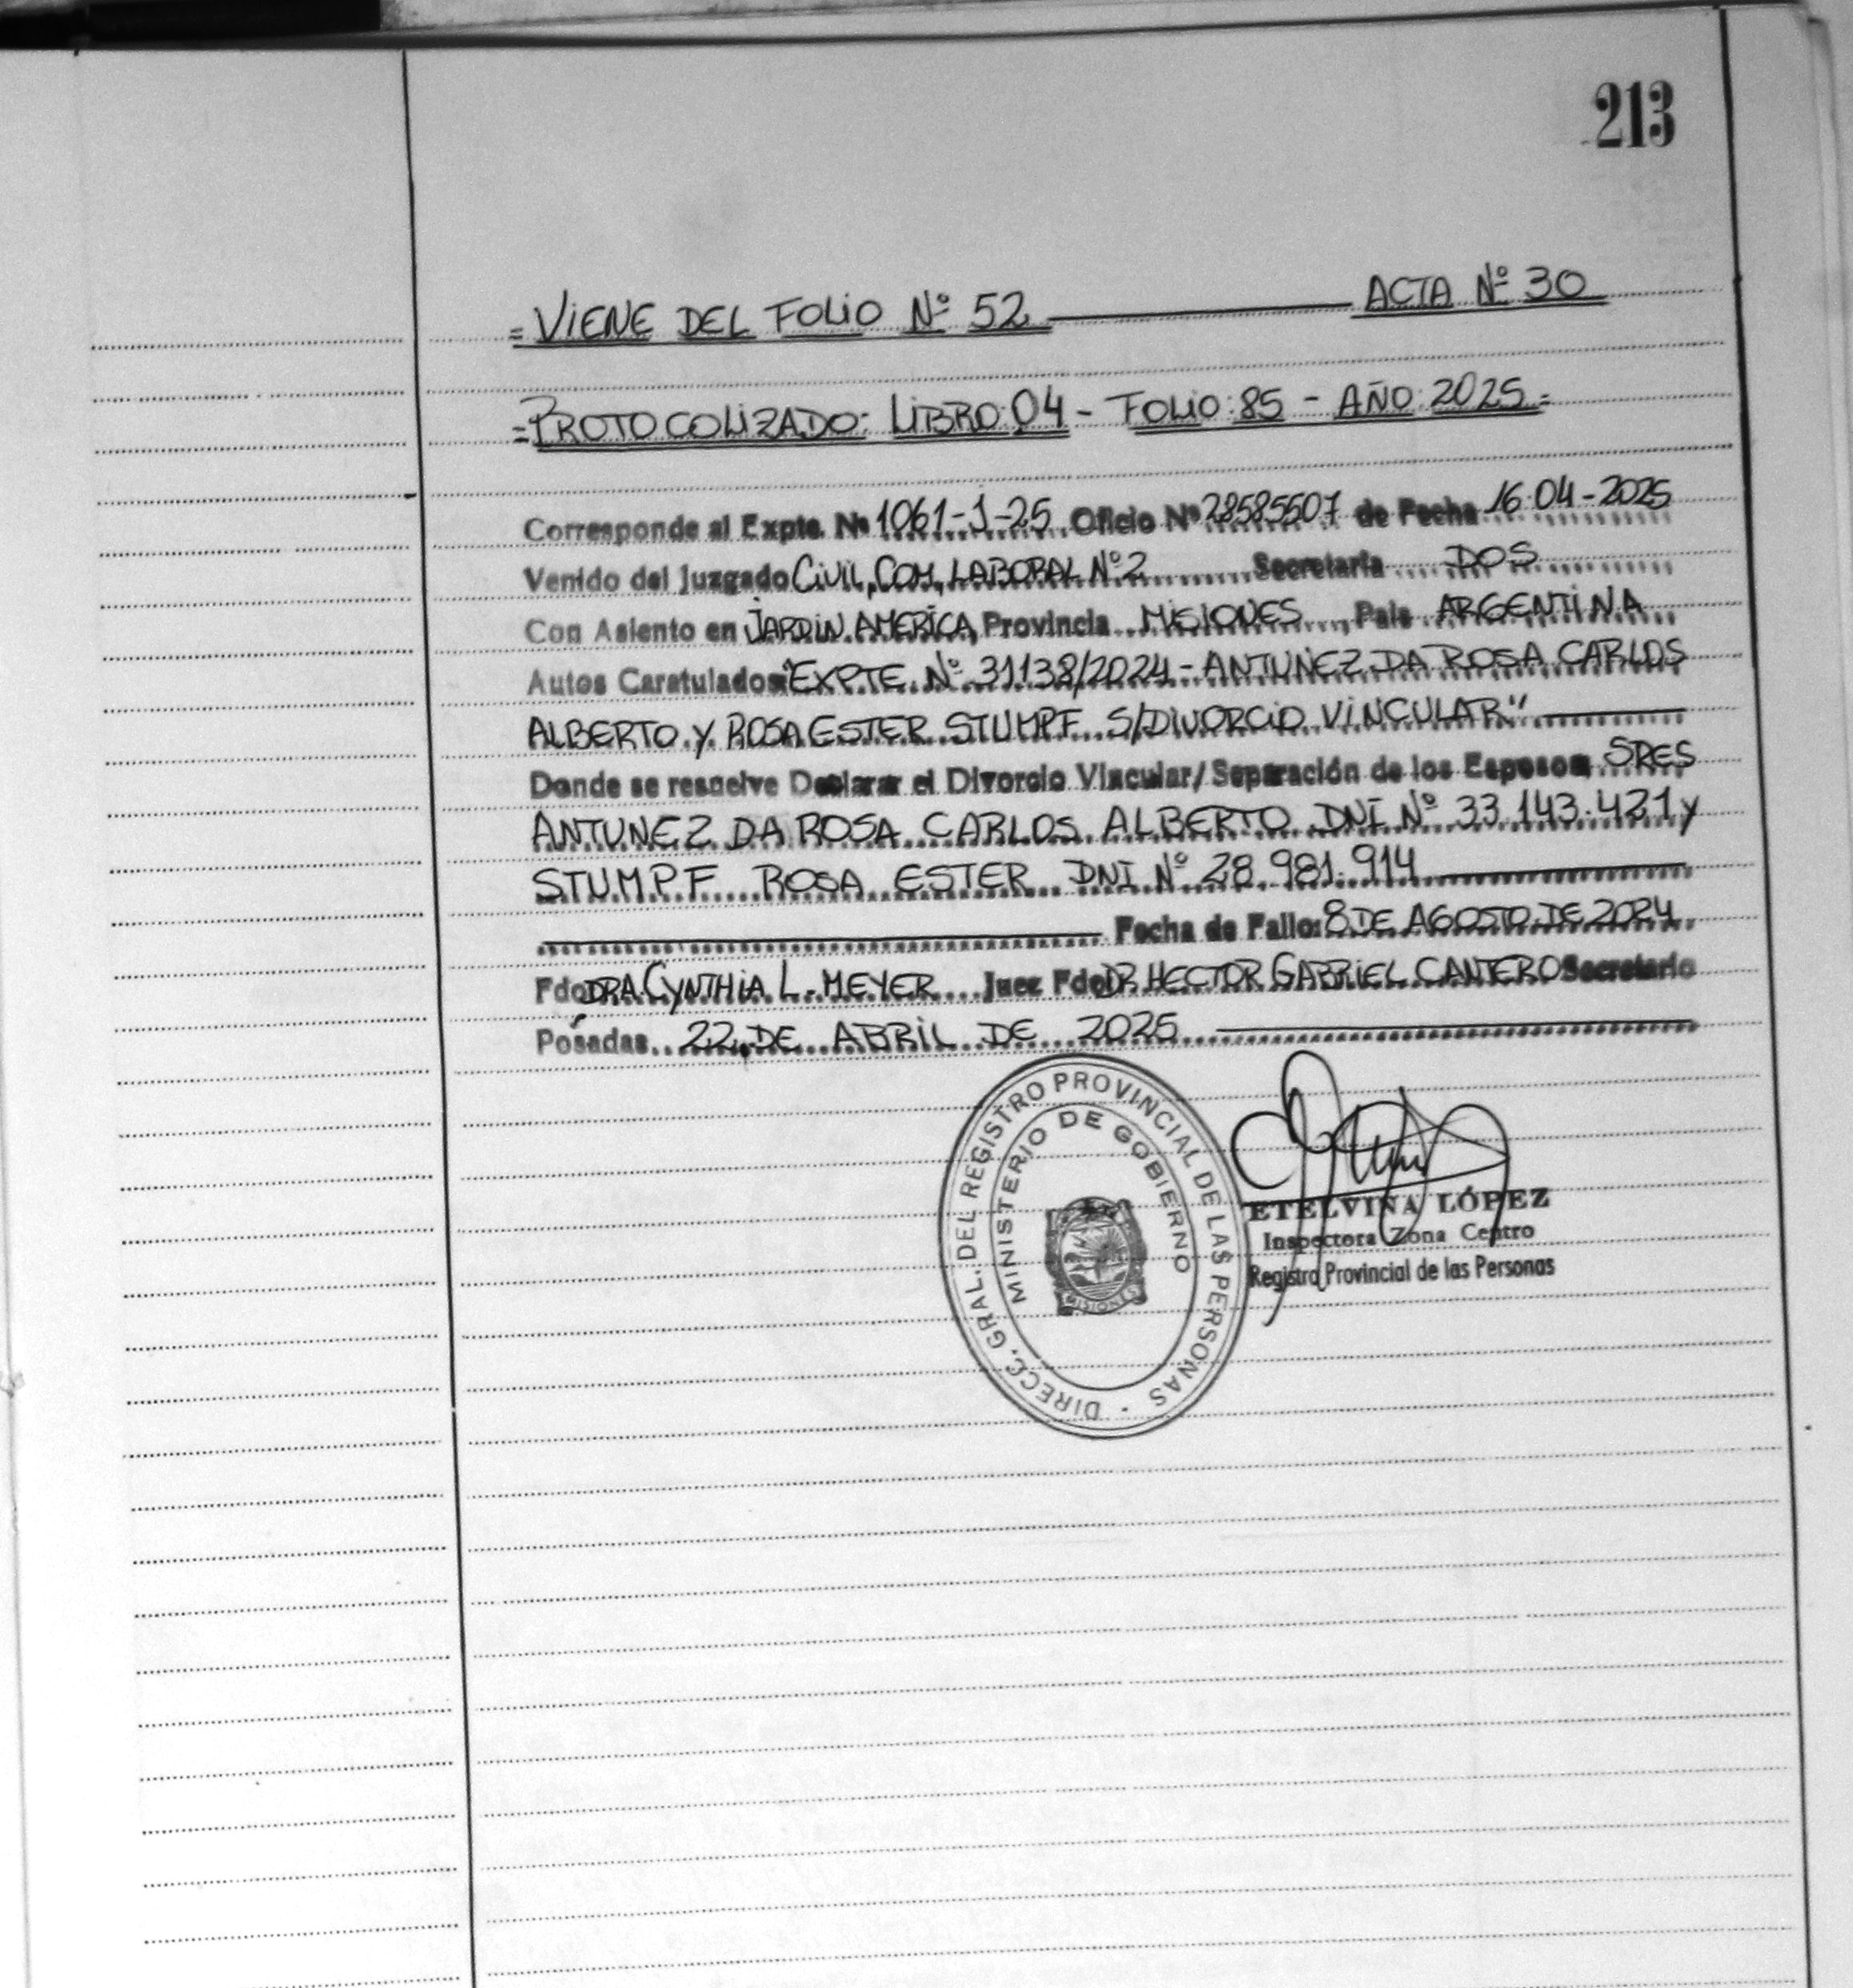 213
= VIENE DEL FOLIO Nº 52 ACTA Nº 30
=PROTOCOLIZADO: LIBRO: 04 - FOLIO: 85 - AÑO: 2025=
Corresponde al Expte. Nº 1061-J-25 Oficio Nº 28585507 de Fecha 16-04-2025
Venido del Juzgado CIVIL, COM, LABORAL Nº 2 Secretaria DOS
Con Asiento en JARDIN AMERICA, Provincia MISIONES, Pais ARGENTINA
Autos Caratulados "EXPTE Nº 31138/2024 - ANTUNEZ DA ROSA CARLOS
ALBERTO Y ROSA ESTER STUMPF S/DIVORCIO VINCULAR"
Donde se resuelve Declarar el Divorcio Vincular/Separación de los Esposos SRES
ANTUNEZ DA ROSA CARLOS ALBERTO DNI Nº 33.143.421 y
STUMPF ROSA ESTER DNI Nº 28.981.914
Fecha de Fallo: 8 DE AGOSTO DE 2024
Fdo DRA. CYNTHIA L. MEYER Juez Fdo DR. HECTOR GABRIEL CANTERO Secretario
Posadas 22 DE ABRIL DE 2025
DIRECC. GRAL. DEL REGISTRO PROVINCIAL DE LAS PERSONAS
MINISTERIO DE GOBIERNO
MISIONES
ETELVINA LÓPEZ
Inspectora Zona Centro
Registro Provincial de las Personas